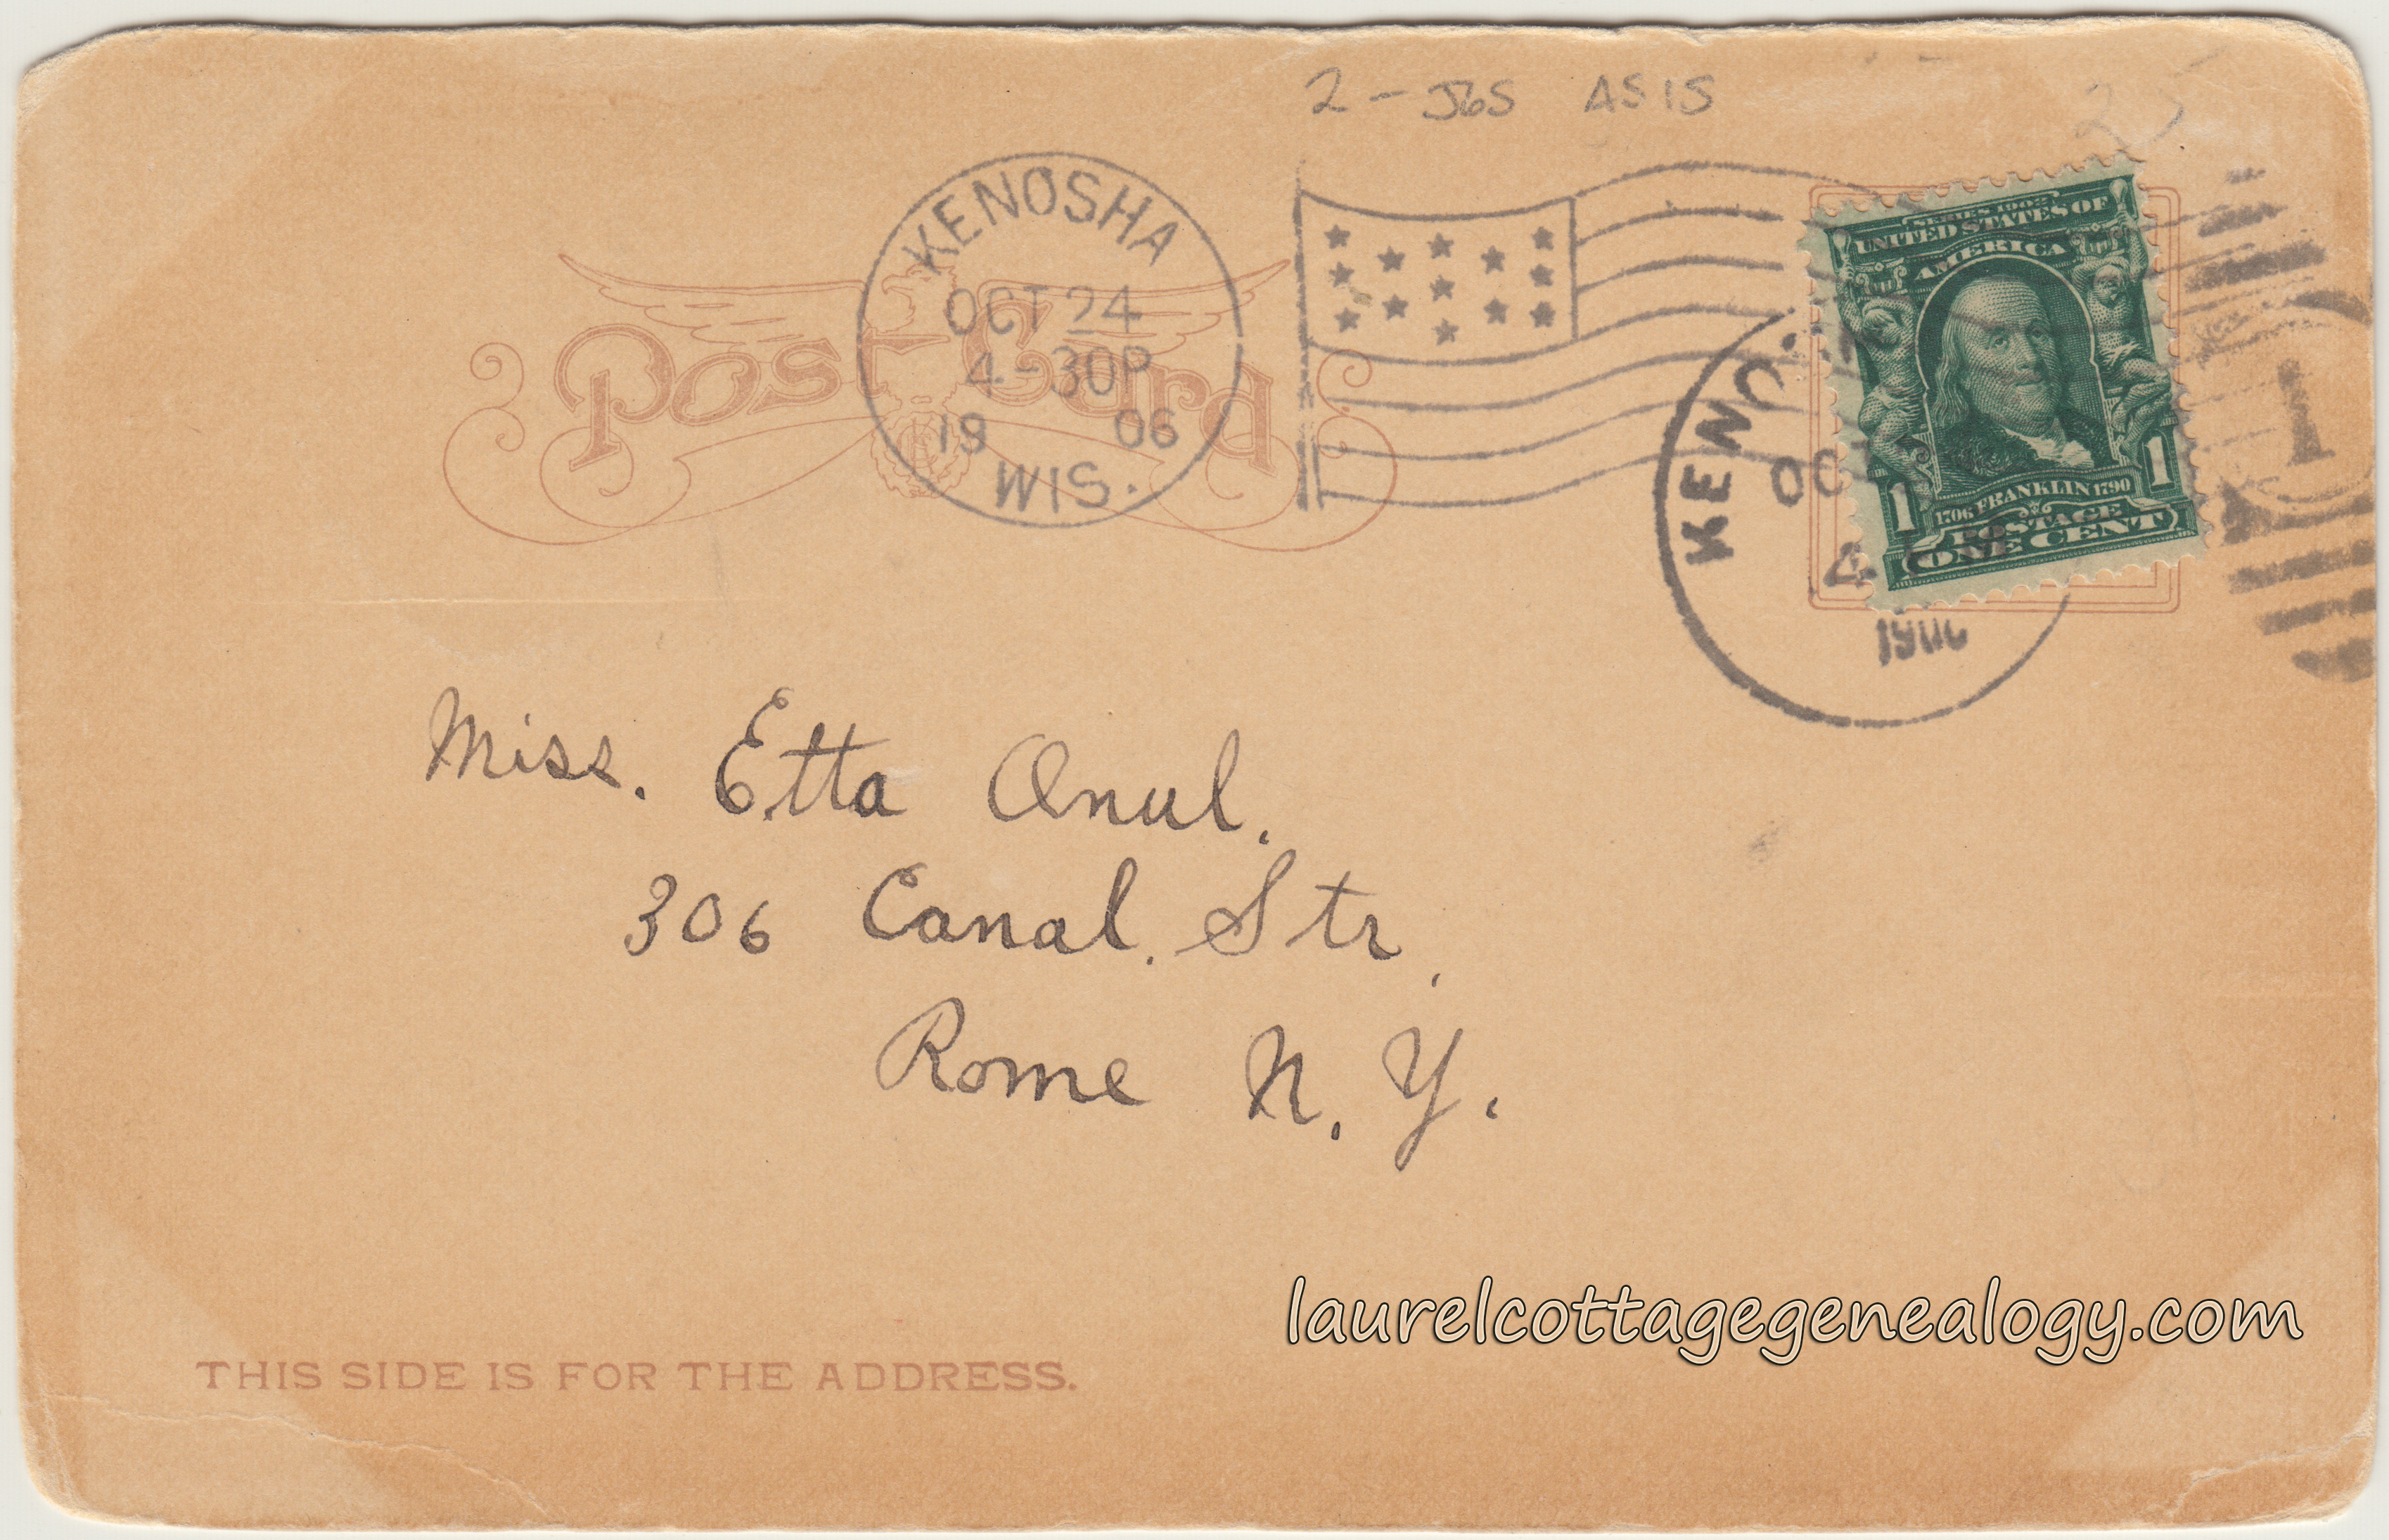 2 - J6S AS IS
25
KENOSHA
OCT 24
4-30P
19 06
WIS.
Post Card
SERIES 1902
UNITED STATES OF
AMERICA
1706 FRANKLIN 1790
1 1
POSTAGE
ONE CENT
KENO
OC
4
1906
1
Miss. Etta Anul.
306 Canal. Str.
Rome N. Y.
laurelcottagegenealogy.com
THIS SIDE IS FOR THE ADDRESS.